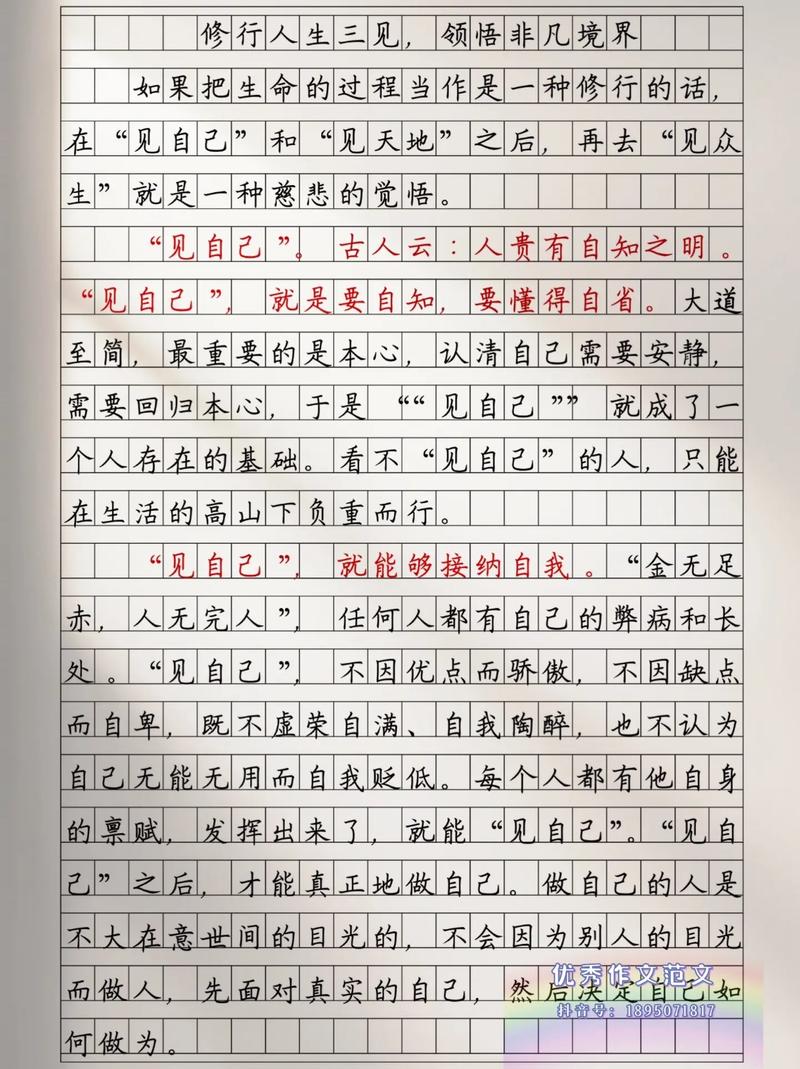 修行人生三见，领悟非凡境界
如果把生命的过程当作是一种修行的话，
在“见自己”和“见天地”之后，再去“见众
生”就是一种慈悲的觉悟。
“见自己”。古人云：人贵有自知之明。
“见自己”，就是要自知，要懂得自省。大道
至简，最重要的是本心，认清自己需要安静，
需要回归本心，于是““见自己””就成了一
个人存在的基础。看不“见自己”的人，只能
在生活的高山下负重而行。
“见自己”，就能够接纳自我。“金无足
赤，人无完人”，任何人都有自己的弊病和长
处。“见自己”，不因优点而骄傲，不因缺点
而自卑，既不虚荣自满、自我陶醉，也不认为
自己无能无用而自我贬低。每个人都有他自身
的禀赋，发挥出来了，就能“见自己”。“见自
己”之后，才能真正地做自己。做自己的人是
不大在意世间的目光的，不会因为别人的目光
而做人，先面对真实的自己，然后决定自己如
何做为。
优秀作文范文
抖音号：1895071817